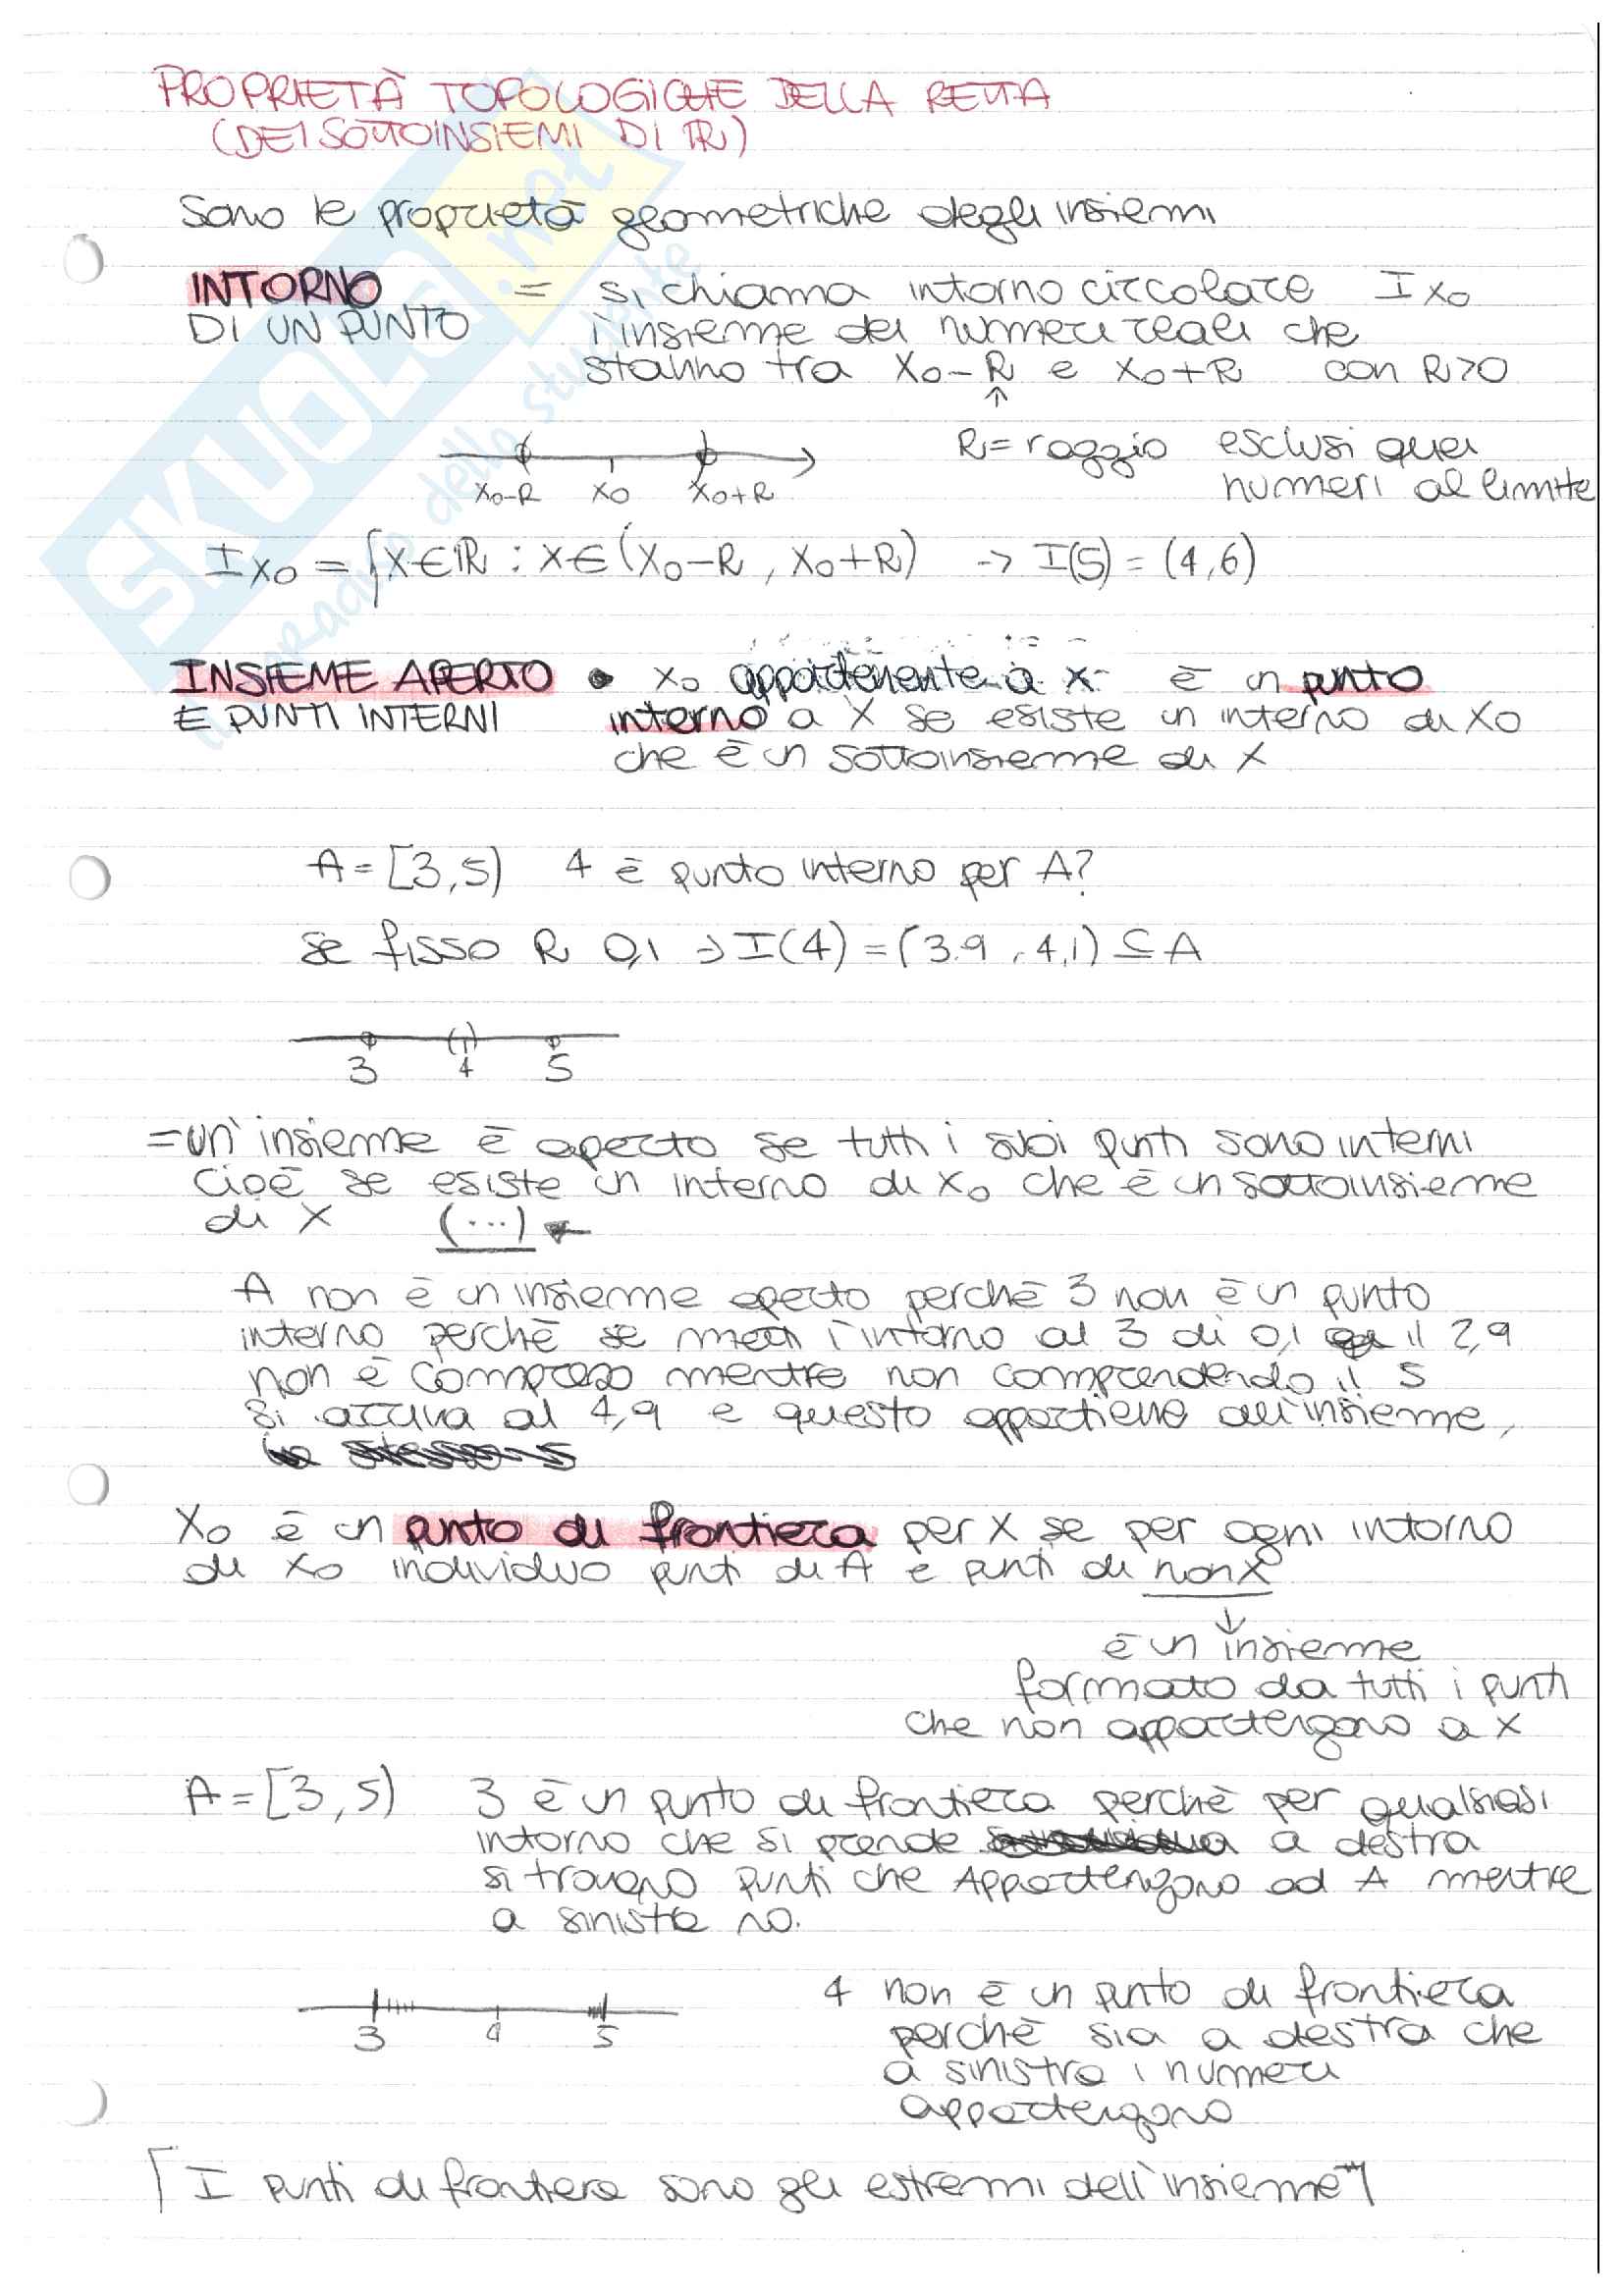 PROPRIETÀ TOPOLOGICHE DELLA RETTA
(DEI SOTTOINSIEMI DI ℝ)
Sono le proprietà geometriche degli insiemi
INTORNO = si chiama intorno circolare Ix₀
DI UN PUNTO l'insieme dei numeri reali che
stanno tra x₀-R e x₀+R con R>0
↑
R=raggio esclusi quei
numeri al limite
x₀-R x₀ x₀+R
Ix₀ = {x∈ℝ : x∈(x₀-R, x₀+R) → I(5) = (4,6)
INSIEME APERTO • x₀ appartenente a x è un punto
E PUNTI INTERNI interno a X se esiste un interno di x₀
che è un sottoinsieme di X
A=[3,5) 4 è punto interno per A?
se fisso R 0,1 ⇒ I(4) = (3.9, 4,1) ⊆ A
3 4 5
= un'insieme è aperto se tutti i suoi punti sono interni
cioè se esiste un interno di x₀ che è un sottoinsieme
di X (...) ←
A non è un insieme aperto perchè 3 non è un punto
interno perchè se metti l'intorno al 3 di 0,1 il 2,9
non è compreso mentre non comprendendo il 5
si arriva al 4,9 e questo appartiene all'insieme,
X₀ è un punto di frontiera per X se per ogni intorno
di x₀ individuo punti di A e punti di non X
↓
è un insieme
formato da tutti i punti
che non appartengono a X
A=[3,5) 3 è un punto di frontiera perchè per qualsiasi
intorno che si prende a destra
si trovano punti che Appartengono ad A mentre
a sinistra no.
3 4 5
4 non è un punto di frontiera
perchè sia a destra che
a sinistra i numeri
appartengono
I punti di frontiera sono gli estremi dell'insieme
SKUOLA.net
il paradiso dello studente